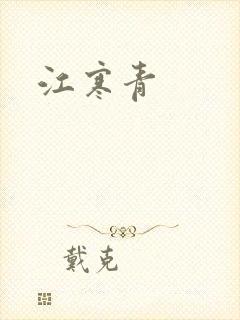 江寒青
戴克